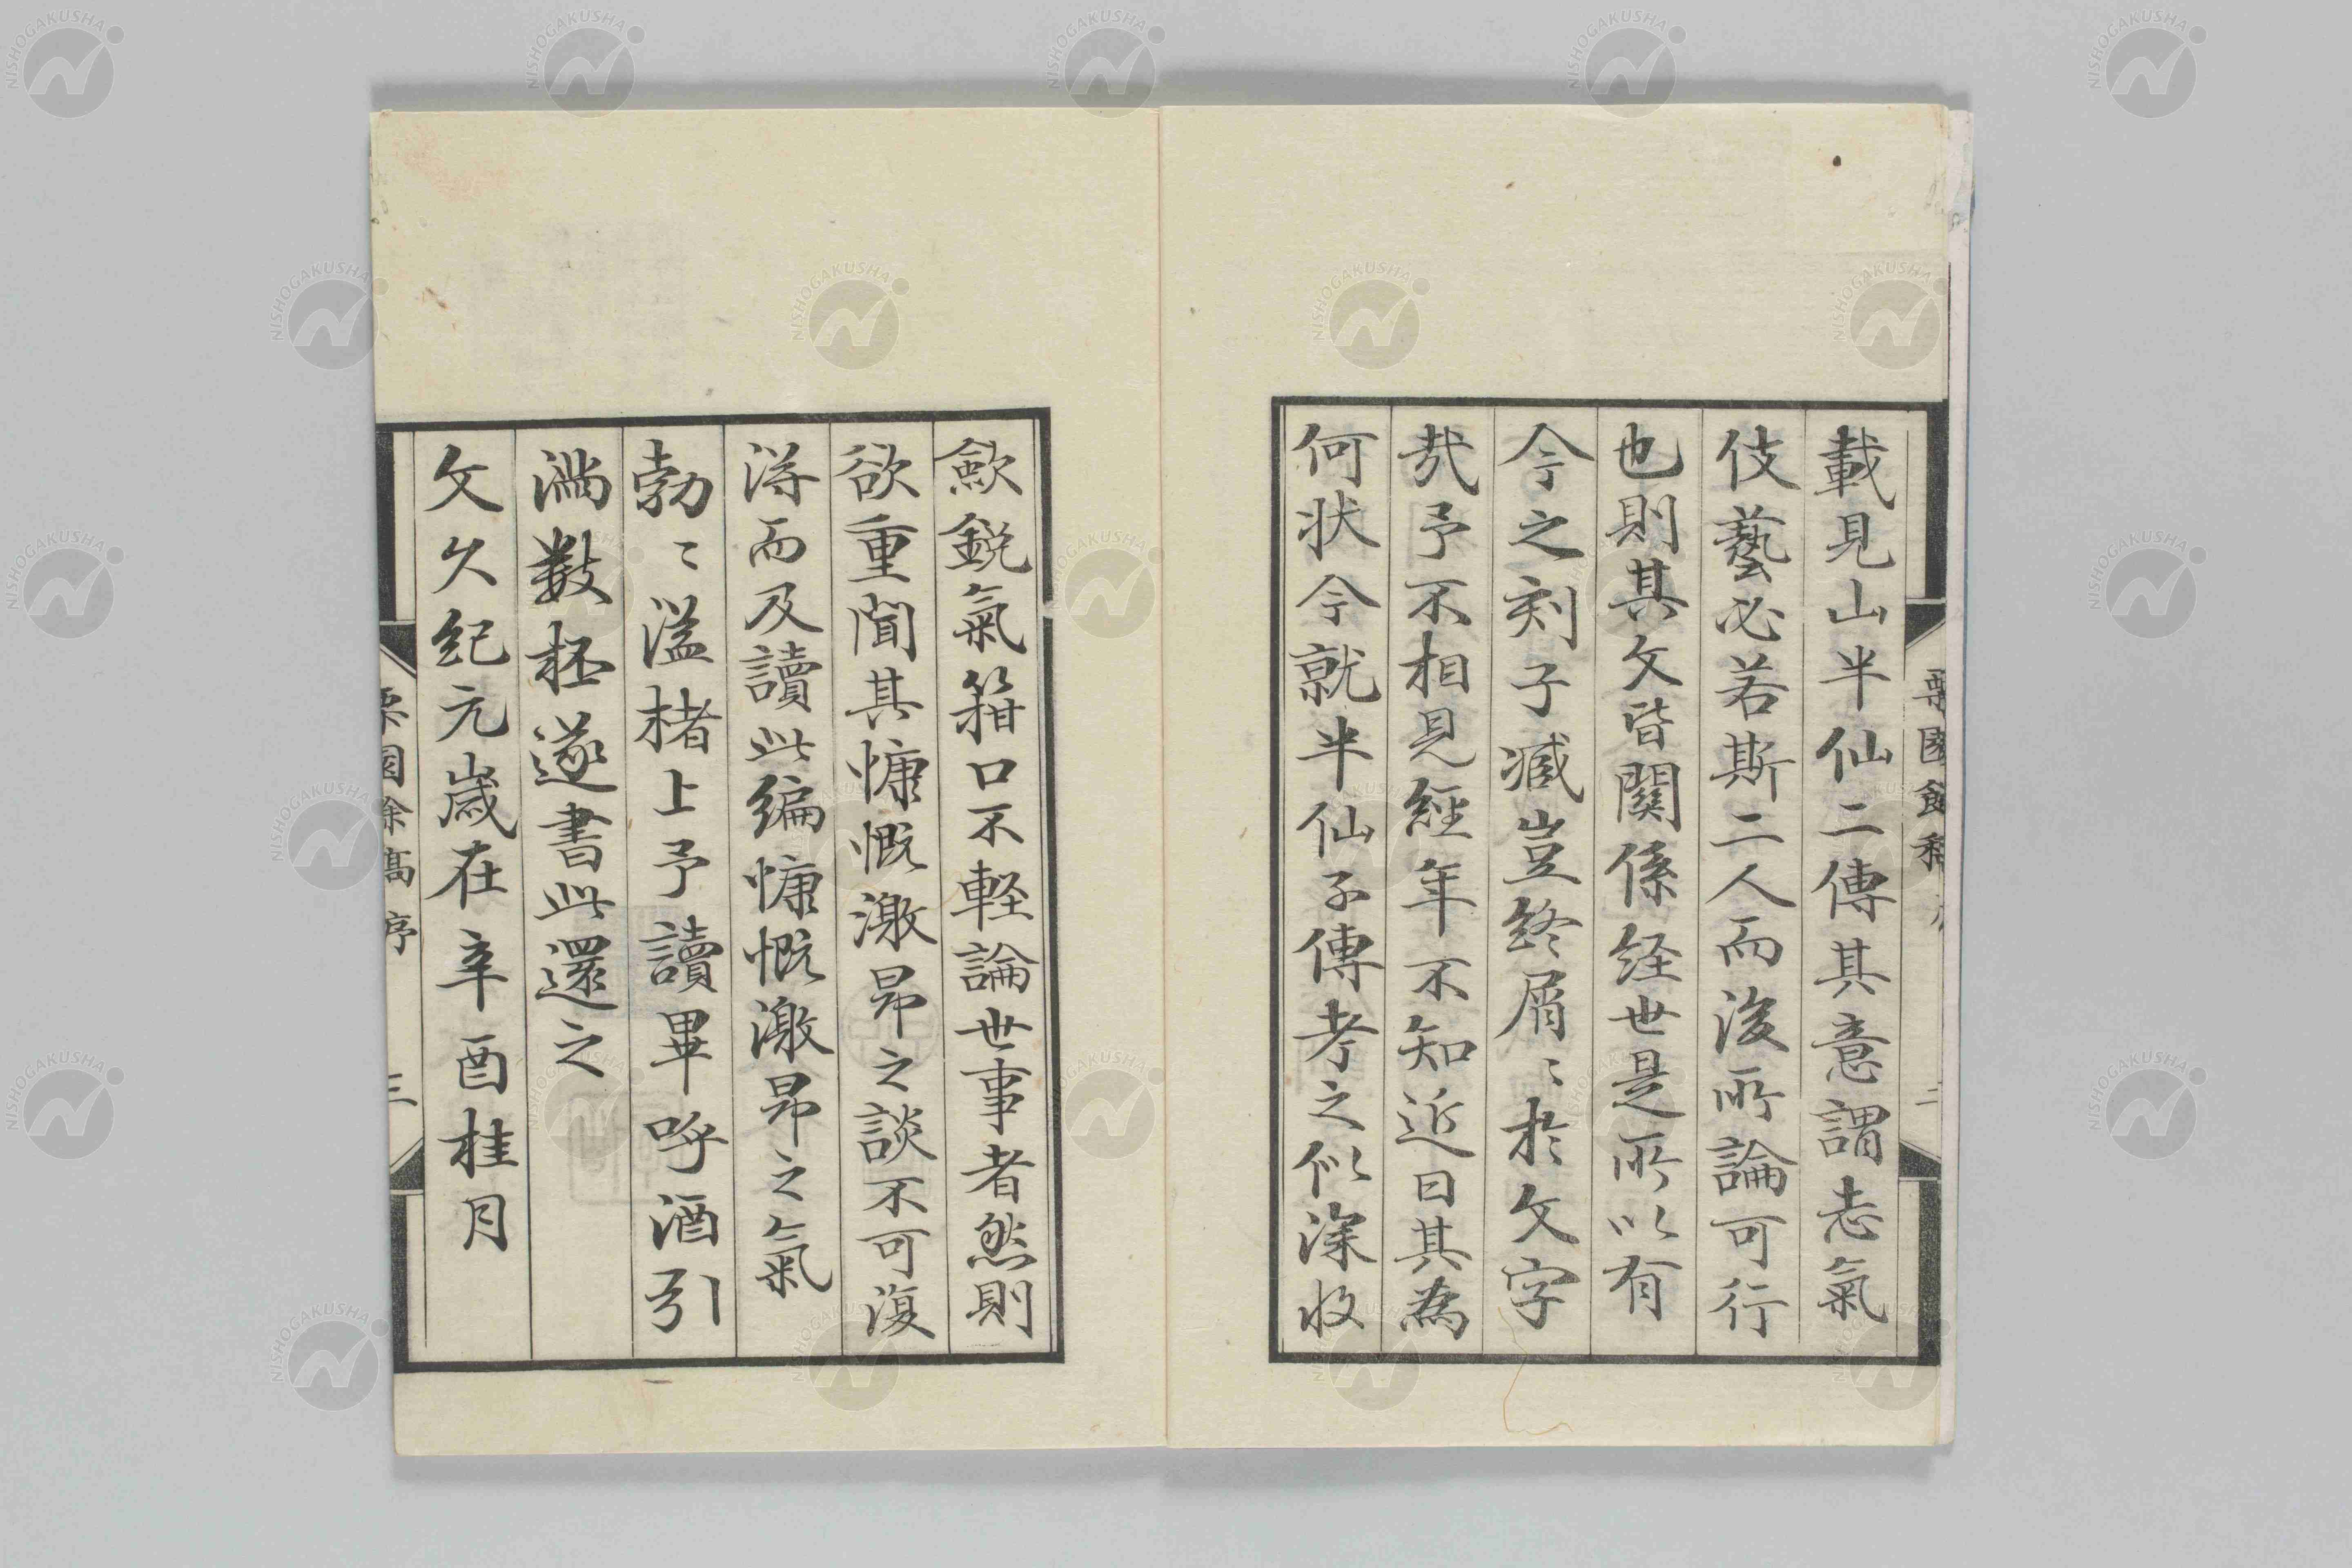 載見山半仙二傳其意謂志氣
伎藝必若斯二人而後所論可行
也則其文皆關係経世是所以有
今之刻子臧豈終屑〻於文字
哉予不相見經年不知近日其為
何状今就半仙子傳考之似深收
歛鋭氣箝口不軽論世事者然則
欲重聞其慷慨激昂之談不可復
得而及讀此編慷慨激昂之氣
勃〻溢楮上予讀畢呼酒引
満數柸遂書此還之
文久紀元歳在辛酉桂月
栗園餘稿
二
栗園餘高序
三
NISHOGAKUSHA